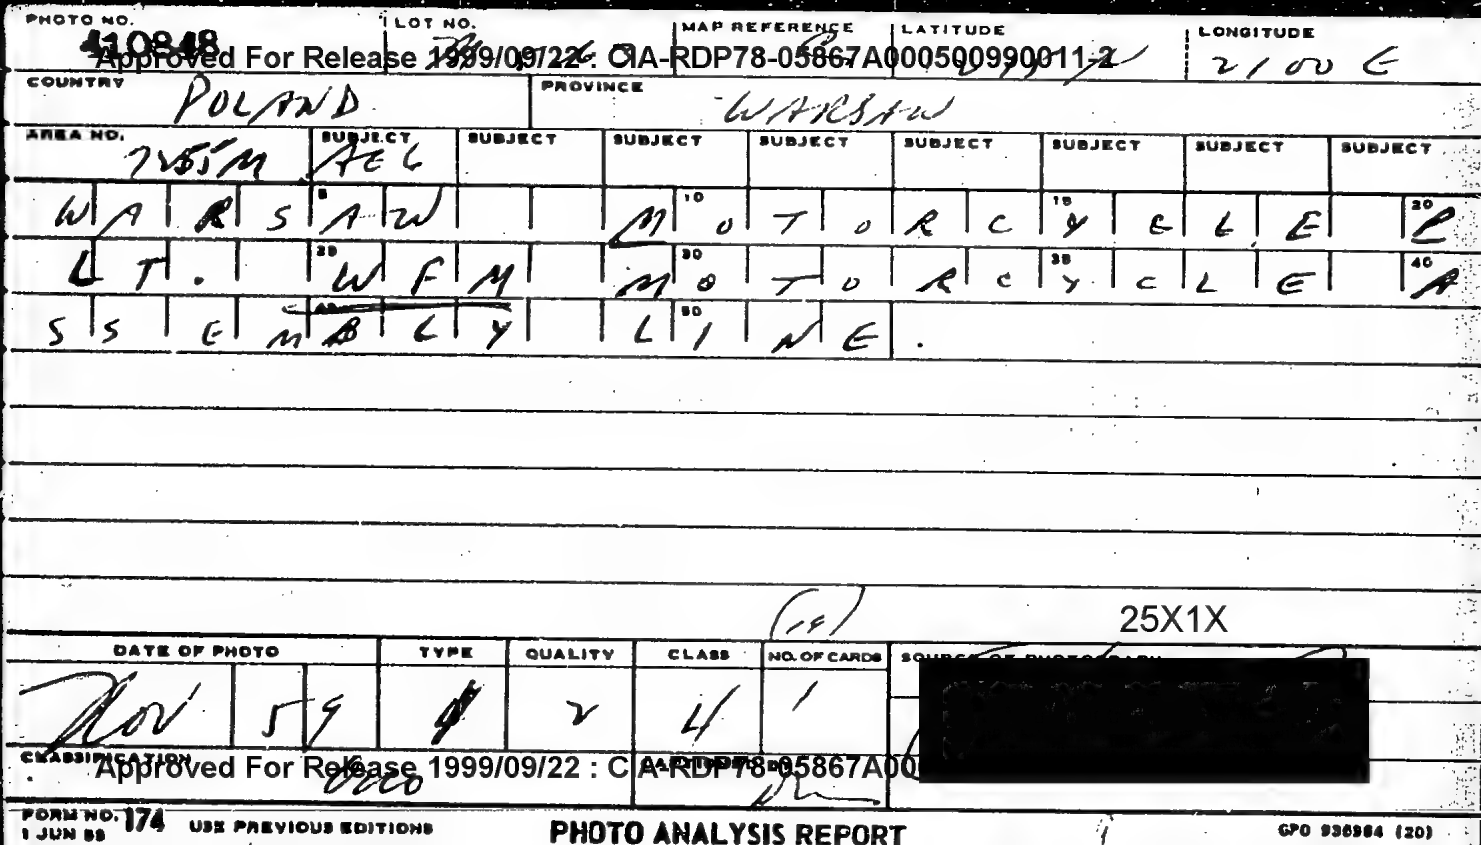 PHOTO NO. LOT NO. MAP REFERENCE LATITUDE LONGITUDE
410848 2100 E
Approved For Release 1999/09/22 : CIA-RDP78-05867A000500990011-2
COUNTRY POLAND PROVINCE WARSAW
AREA NO. SUBJECT SUBJECT SUBJECT SUBJECT SUBJECT SUBJECT SUBJECT SUBJECT
7255M
5 10 15 20
WARSAW MOTORCYELE P
25 30 35 40
LT. WFM MOTORCYCLE A
50
SSEMBLY LINE.
25X1X
DATE OF PHOTO TYPE QUALITY CLASS NO. OF CARDS SOURCE OF PHOTOGRAPH
Nov 59 2 4 1
CLASSIFICATION
Approved For Release 1999/09/22 : CIA-RDP78-05867A00
FORM NO. 174 USE PREVIOUS EDITIONS PHOTO ANALYSIS REPORT GPO 936984 (20)
1 JUN 58